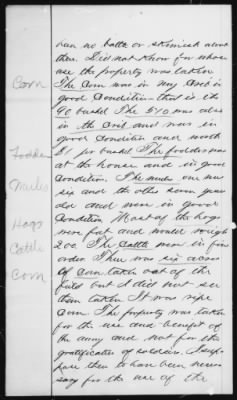 been no battle or skirmish about
there. Did not know for whose
use the property was taken
Corn The Corn was in my Crib in
good Condition - that is the
90 bushel The 510 was also
in the Crib and was in
good Condition and worth
Fodder $1 per bushel The fodder was
at the house and in good
Mules Condition. The mules one was
six and the other seven years
old and were in good
Hogs Condition Most of the hogs
were fat and would weigh
Cattle 200. The Cattle were in fine
order. There was six acres
Corn of corn taken out of the
field but I did not see
them taken. It was ripe
Corn. The property was taken
for the use and benefit of
the army and not for the
gratification of soldiers. I sup-
pose then to have been neces-
sary for the use of the